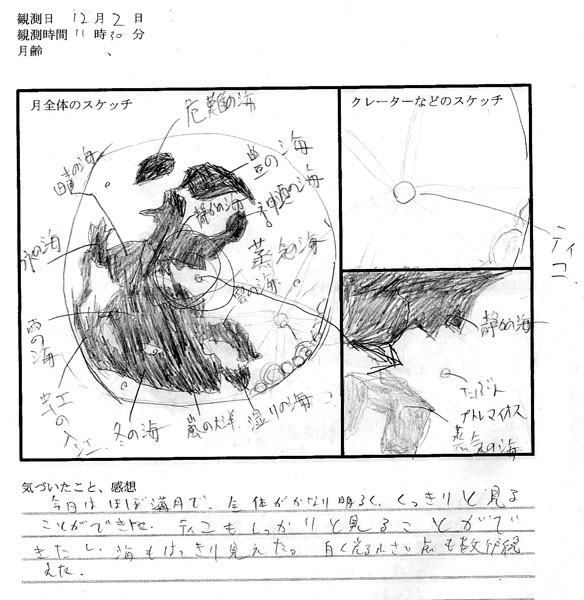 観測日 12月2日
観測時間 11時30分
月齢 、
月全体のスケッチ
クレーターなどのスケッチ
危難の海
晴の海
豊の海
静かの海
神酒の海
氷の海
蒸気の海
雲の海
雨の海
虹の入江
冬の海
嵐の大洋
湿りの海
ティコ
静かの海
たぶん
プトレマイオス
蒸気の海
気づいたこと、感想
今日はほぼ満月で、全体がかなり明るく、くっきりと見る
ことができた。ティコもしっかりと見ることがで
きたし、海もはっきり見えた。白く光る小さい点も数ヶ所
見えた。